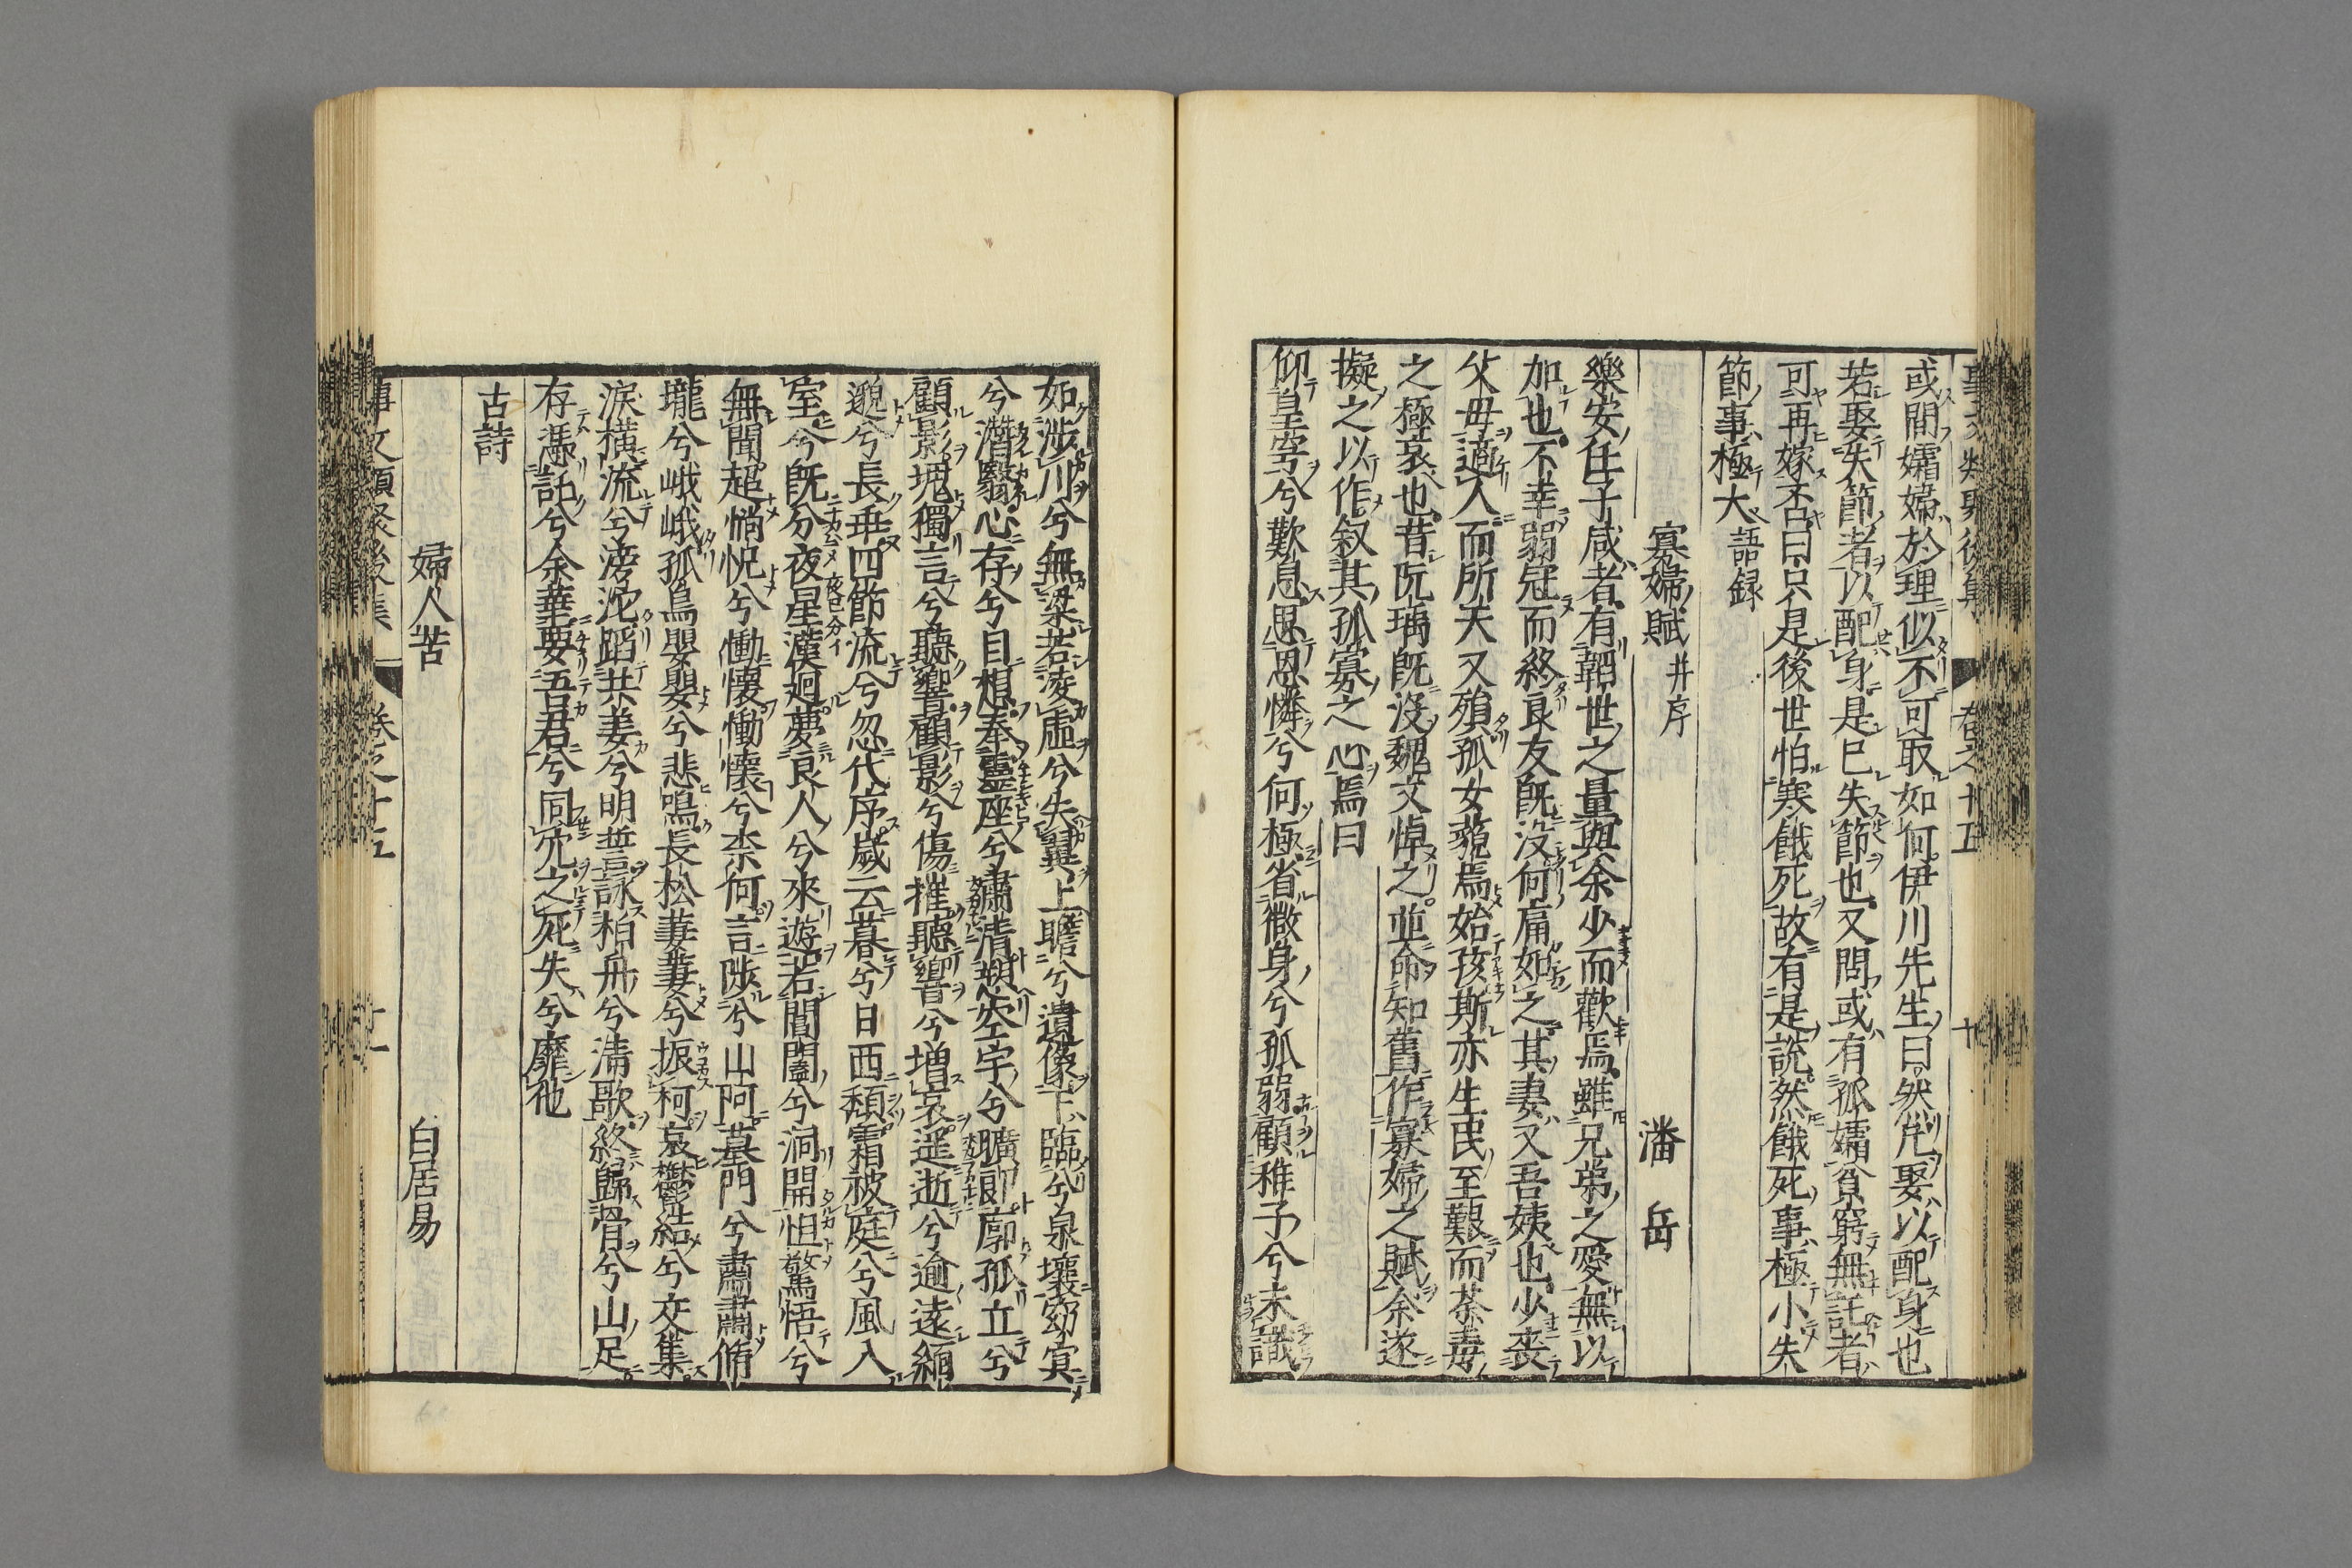 或問孀婦於理似不可取如何伊川先生曰然凡娶以配身也
若娶失節者以配身是已失節也又問或有孤孀貧窮無託者
可再嫁否曰只是後世怕寒餓死故有是說然餓死事極小失
節事極大 語録
寡婦賦 并序 潘岳
樂安任子咸者有韜世之量與余少而歡焉雖兄弟之愛無以
加也不幸弱冠而終良友既没何痛如之其妻又吾姨也少喪
父母適人而所天又殞孤女藐焉始孩斯亦生民至艱而荼毒
之極哀也昔阮瑀既沒魏文悼之並命知舊作寡婦之賦余遂
擬之以作叙其孤寡之心焉曰
仰皇穹兮歎息思恩憐兮何極省微身兮孤弱顧稚子兮未識
如涉川兮無梁若凌虛兮失翼上瞻兮遺像下臨兮泉壤窈冥
兮潛翳心存兮目想奉靈座兮肅清愬空宇兮曠朗廓孤立兮
顧影塊獨言兮聽響顧影兮傷摧聽響兮增哀遥逝兮逾遠緬
邈兮長乖四節流兮忽代序歲云暮兮日西頽霜被庭兮風入
室兮既分夜星漢廻夢良人兮來遊若閶闔兮洞開怛驚悟兮
無聞超惝怳兮慟懐慟懐兮柰何言陟兮山阿墓門兮肅肅脩
壠兮峨峨孤鳥嬰嬰兮悲鳴長松萋萋兮振柯哀鬱結兮交集
淚横流兮滂沱蹈共姜兮明誓詠柏舟兮清歌終歸骨兮山足
存憑託兮余華要吾君兮同穴之死失兮靡他
古詩
婦人苦 白居易
事文類聚後集 卷之十五